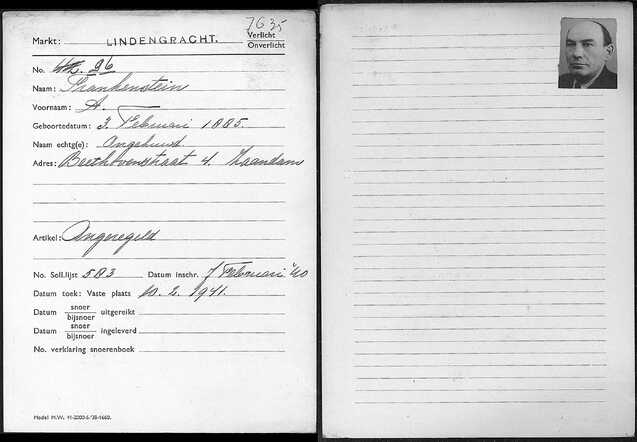 7635
Markt: LINDENGRACHT. Verlicht
Onverlicht
No. 96
Naam: Frankenstein
Voornaam: A.
Geboortedatum: 3 Februari 1885.
Naam echtg(e): Ongehuwd
Adres: Beethovenstraat 4. Zaandam
Artikel: Ongeregeld
No. Soll.lijst 583 Datum inschr. 7 Februari '40
Datum toek: Vaste plaats 10.2.1941.
Datum snoer uitgereikt
bijsnoer
Datum snoer ingeleverd
bijsnoer
No. verklaring snoerenboek
Model M.W. 11-2000-5-'38-1660.